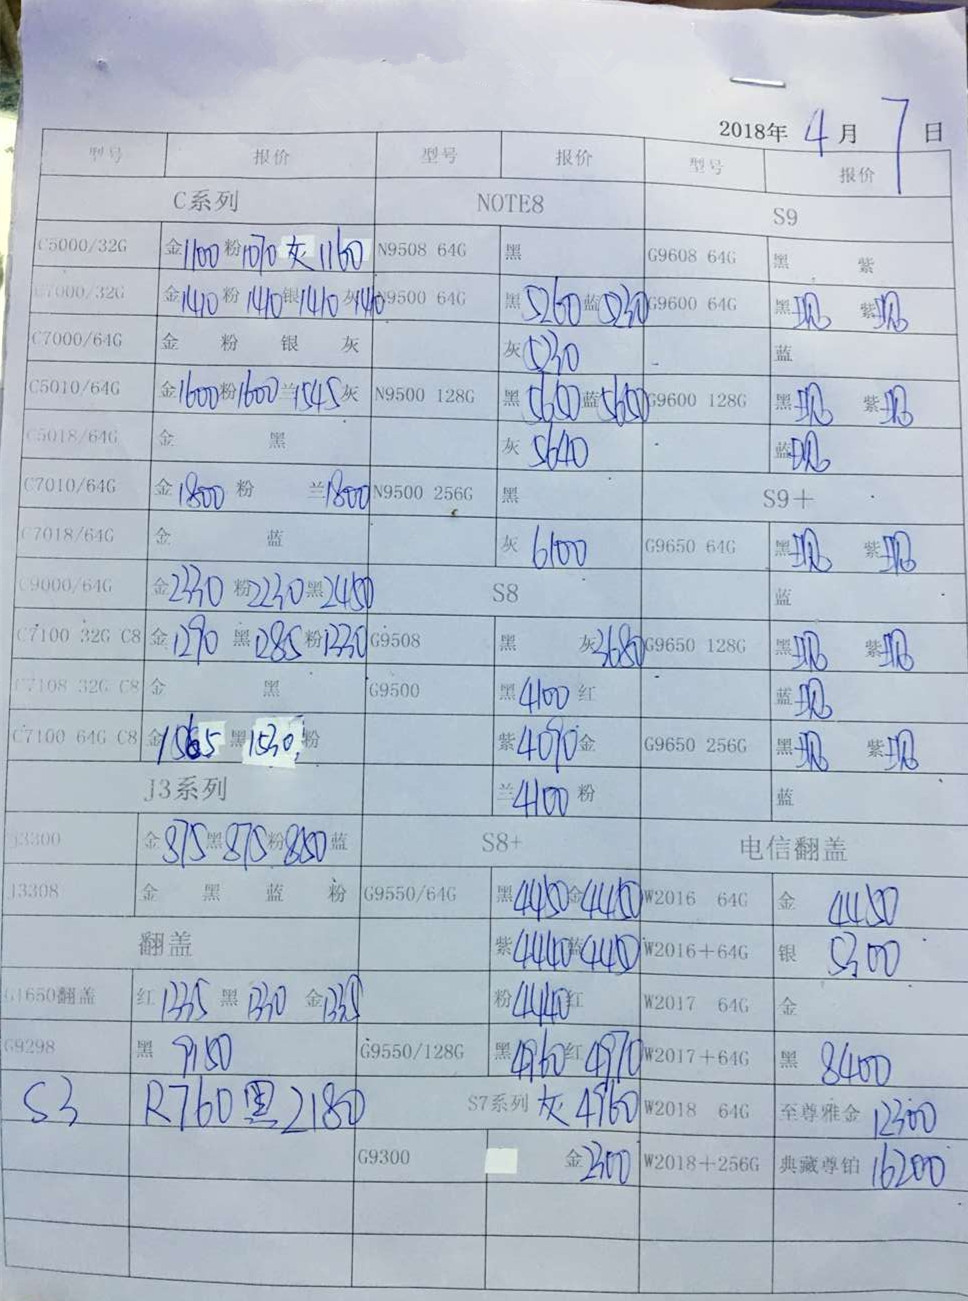 2018年 4月 7日
型号 报价 型号 报价 型号 报价
C系列 NOTE8 S9
C5000/32G 金1100 粉1070 灰1160 N9508 64G 黑 G9608 64G 黑 紫
C7000/32G 金1410 粉1410 银1410 灰1410 N9500 64G 黑5260 蓝5230 G9600 64G 黑现 紫现
C7000/64G 金 粉 银 灰 灰5230 蓝
C5010/64G 金1600 粉1600 兰1545 灰 N9500 128G 黑5650 蓝5650 G9600 128G 黑现 紫现
C5018/64G 金 黑 灰5640 蓝现
C7010/64G 金1800 粉 兰1800 N9500 256G 黑 S9+
C7018/64G 金 蓝 灰6100 G9650 64G 黑现 紫现
C9000/64G 金2230 粉2230 黑2450 S8 蓝
C7100 32G C8 金1290 黑1285 粉1230 G9508 黑 灰3680 G9650 128G 黑现 紫现
C7108 32G C8 金 黑 G9500 黑4100 红 蓝现
C7100 64G C8 金1565 黑1530 粉 紫4090 金 G9650 256G 黑现 紫现
J3系列 兰4100 粉 蓝
J3300 金875 黑875 粉850 蓝 S8+ 电信翻盖
J3308 金 黑 蓝 粉 G9550/64G 黑4450 金4450 W2016 64G 金 4450
翻盖 紫4440 蓝4450 W2016+64G 银 5300
G1650翻盖 红1335 黑1330 金1335 粉4440 红 W2017 64G 金
G9298 黑 9150 G9550/128G 黑4960 红4970 W2017+64G 黑 8400
S3 R760黑2180 S7系列 灰4960 W2018 64G 至尊雅金 12300
G9300 金2300 W2018+256G 典藏尊铂 16200